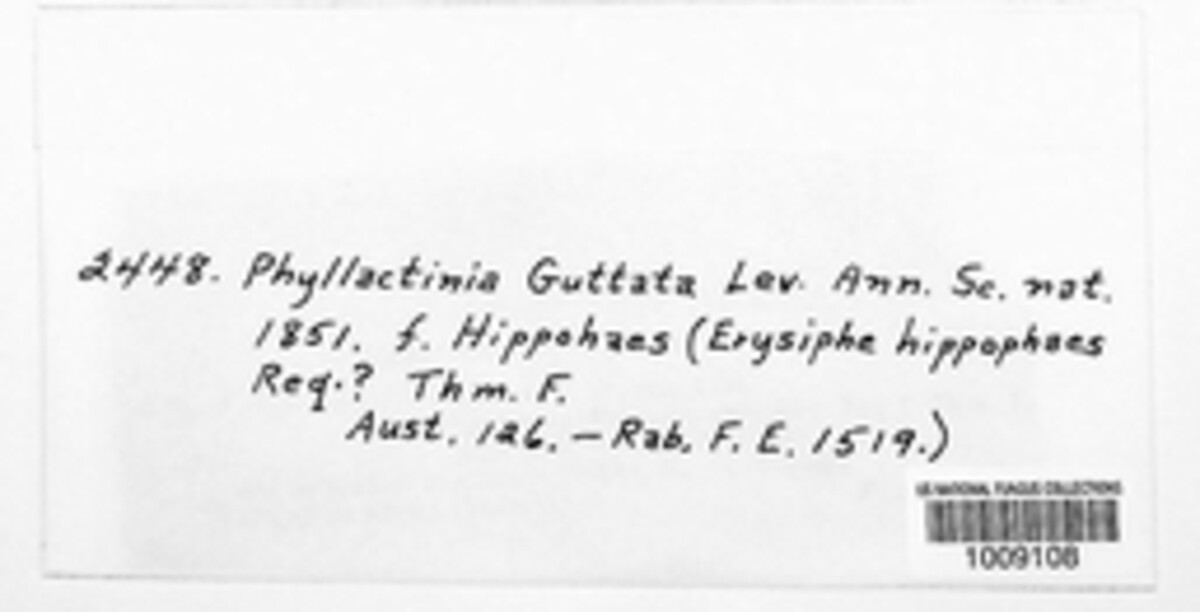 2448. Phyllactinia Guttata Lev. Ann. Sc. nat.
1851. f. Hippohaes (Erysiphe hippophaes
Req.? Thm. F.
Aust. 126. — Rab. F. E. 1519.)
US NATIONAL FUNGUS COLLECTIONS
1009108